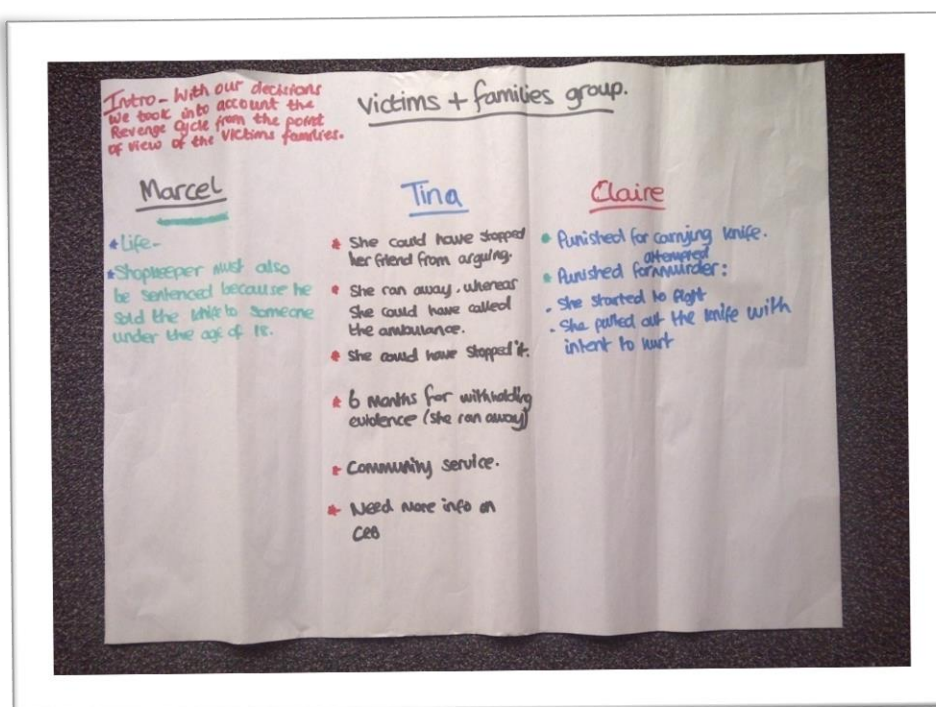 Intro - With our decisions
we took into account the
Revenge Cycle from the point
of view of the victims families.
Victims + families group.
Marcel
* Life -
* Shopkeeper must also
be sentenced because he
sold the knife to someone
under the age of 18.
Tina
* She could have stopped
her friend from arguing.
* She ran away, whereas
She could have called
the ambulance.
* She could have stopped it.
* 6 months for withholding
evidence (she ran away)
* Community service.
* Need more info on
CRB
Claire
• Punished for carrying knife.
attempted
• Punished for murder:
- She started to fight
- She pulled out the knife with
intent to hurt